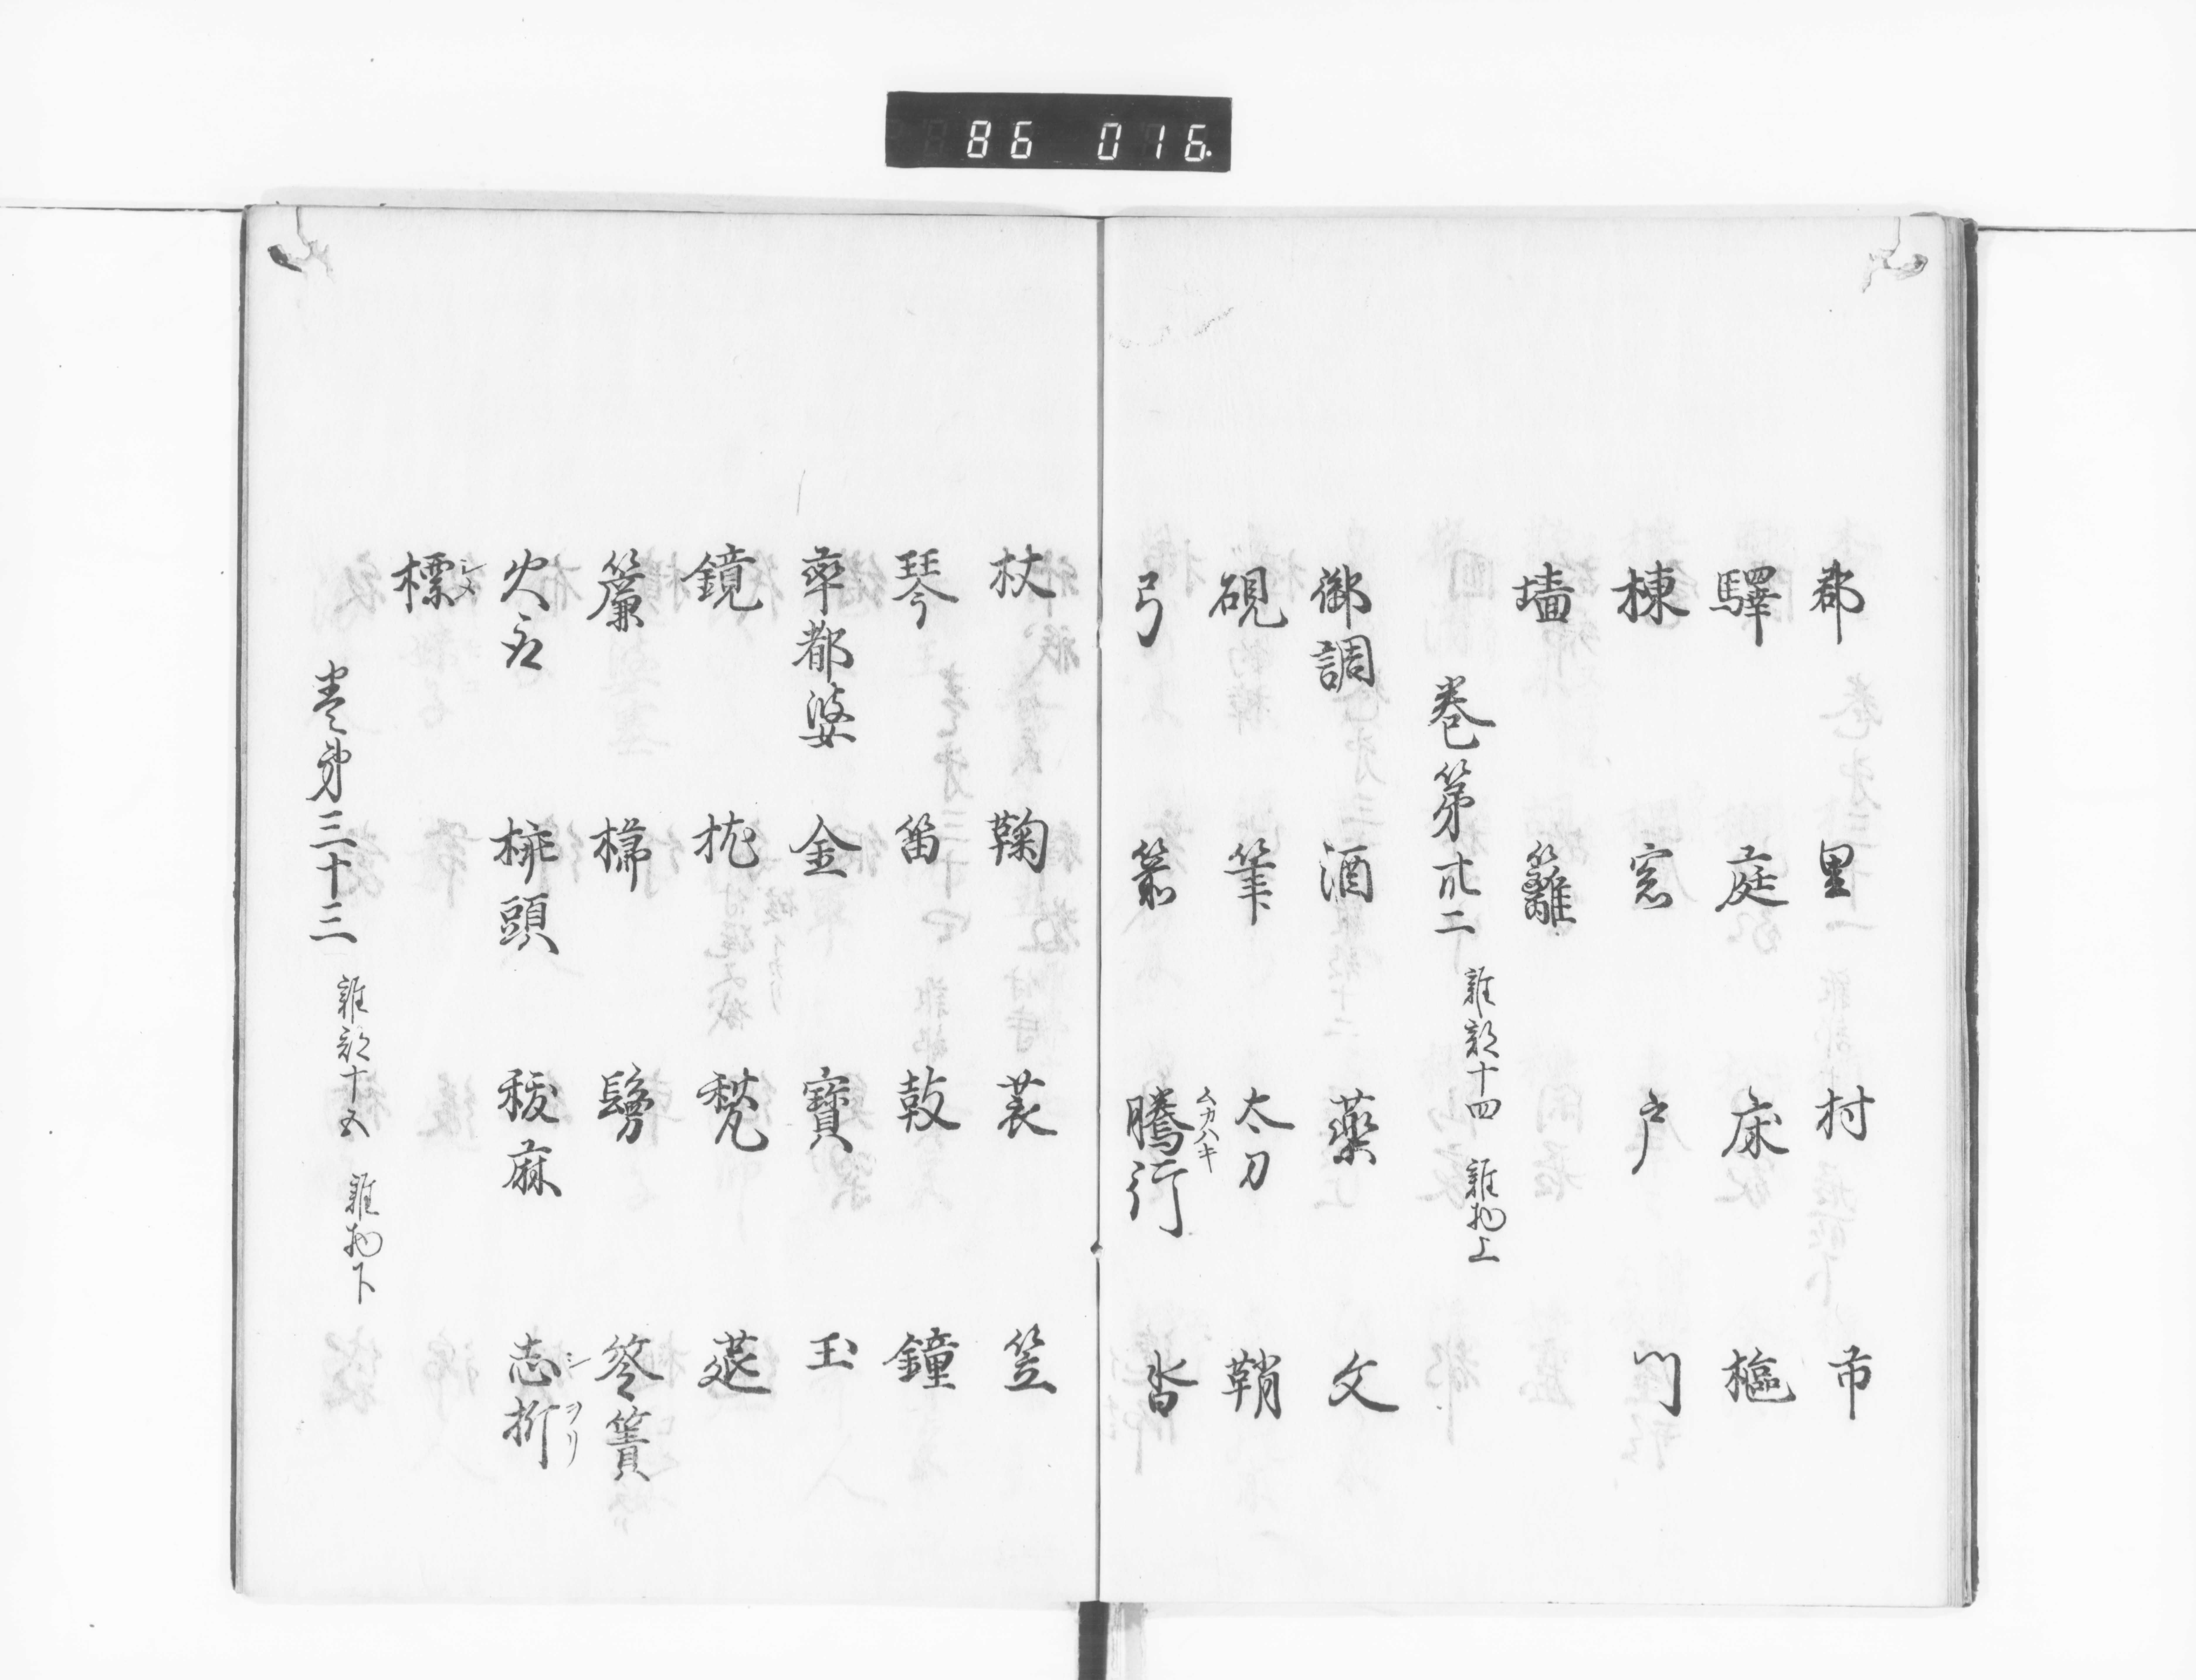 86 016
郡 里 村 市
驛 庭 床 樞
棟 窓 戸 門
墻 籬
巻第卅二 雜部十四 雜物上
御調 酒 藥 文
硯 筆 太刀 鞘
弓 箭 騰行 ムカハキ 沓
杖 鞠 蓑 笠
琴 笛 鼓 鐘
率都婆 金 寶 玉
鏡 枕 莚
簾 梯 鬘 答簀
火 頭 麻 志折 シヲリ
標 シメ
巻第三十三 雜部十五 雜物下